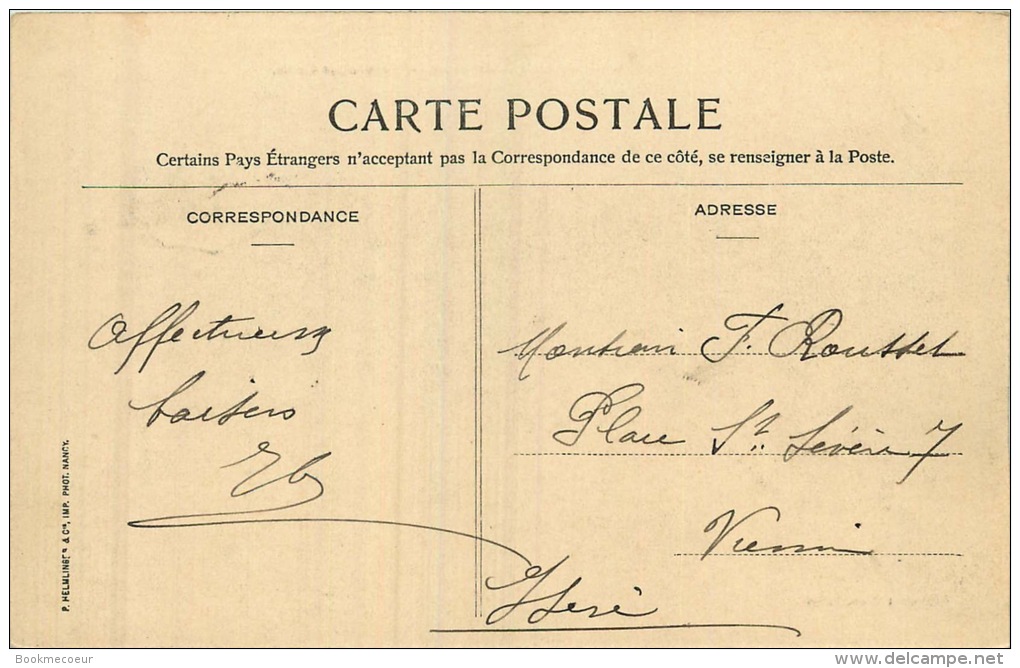 CARTE POSTALE
Certains Pays Étrangers n'acceptant pas la Correspondance de ce côté, se renseigner à la Poste.
CORRESPONDANCE
Affectueux
baisers
ADRESSE
Monsieur F. Roussel
Place St. Sévère 7
Vienne
Isère
P. HELMLINGER & Cie, IMP. PHOT. NANCY.
Bookmecoeur
www.delcampe.net